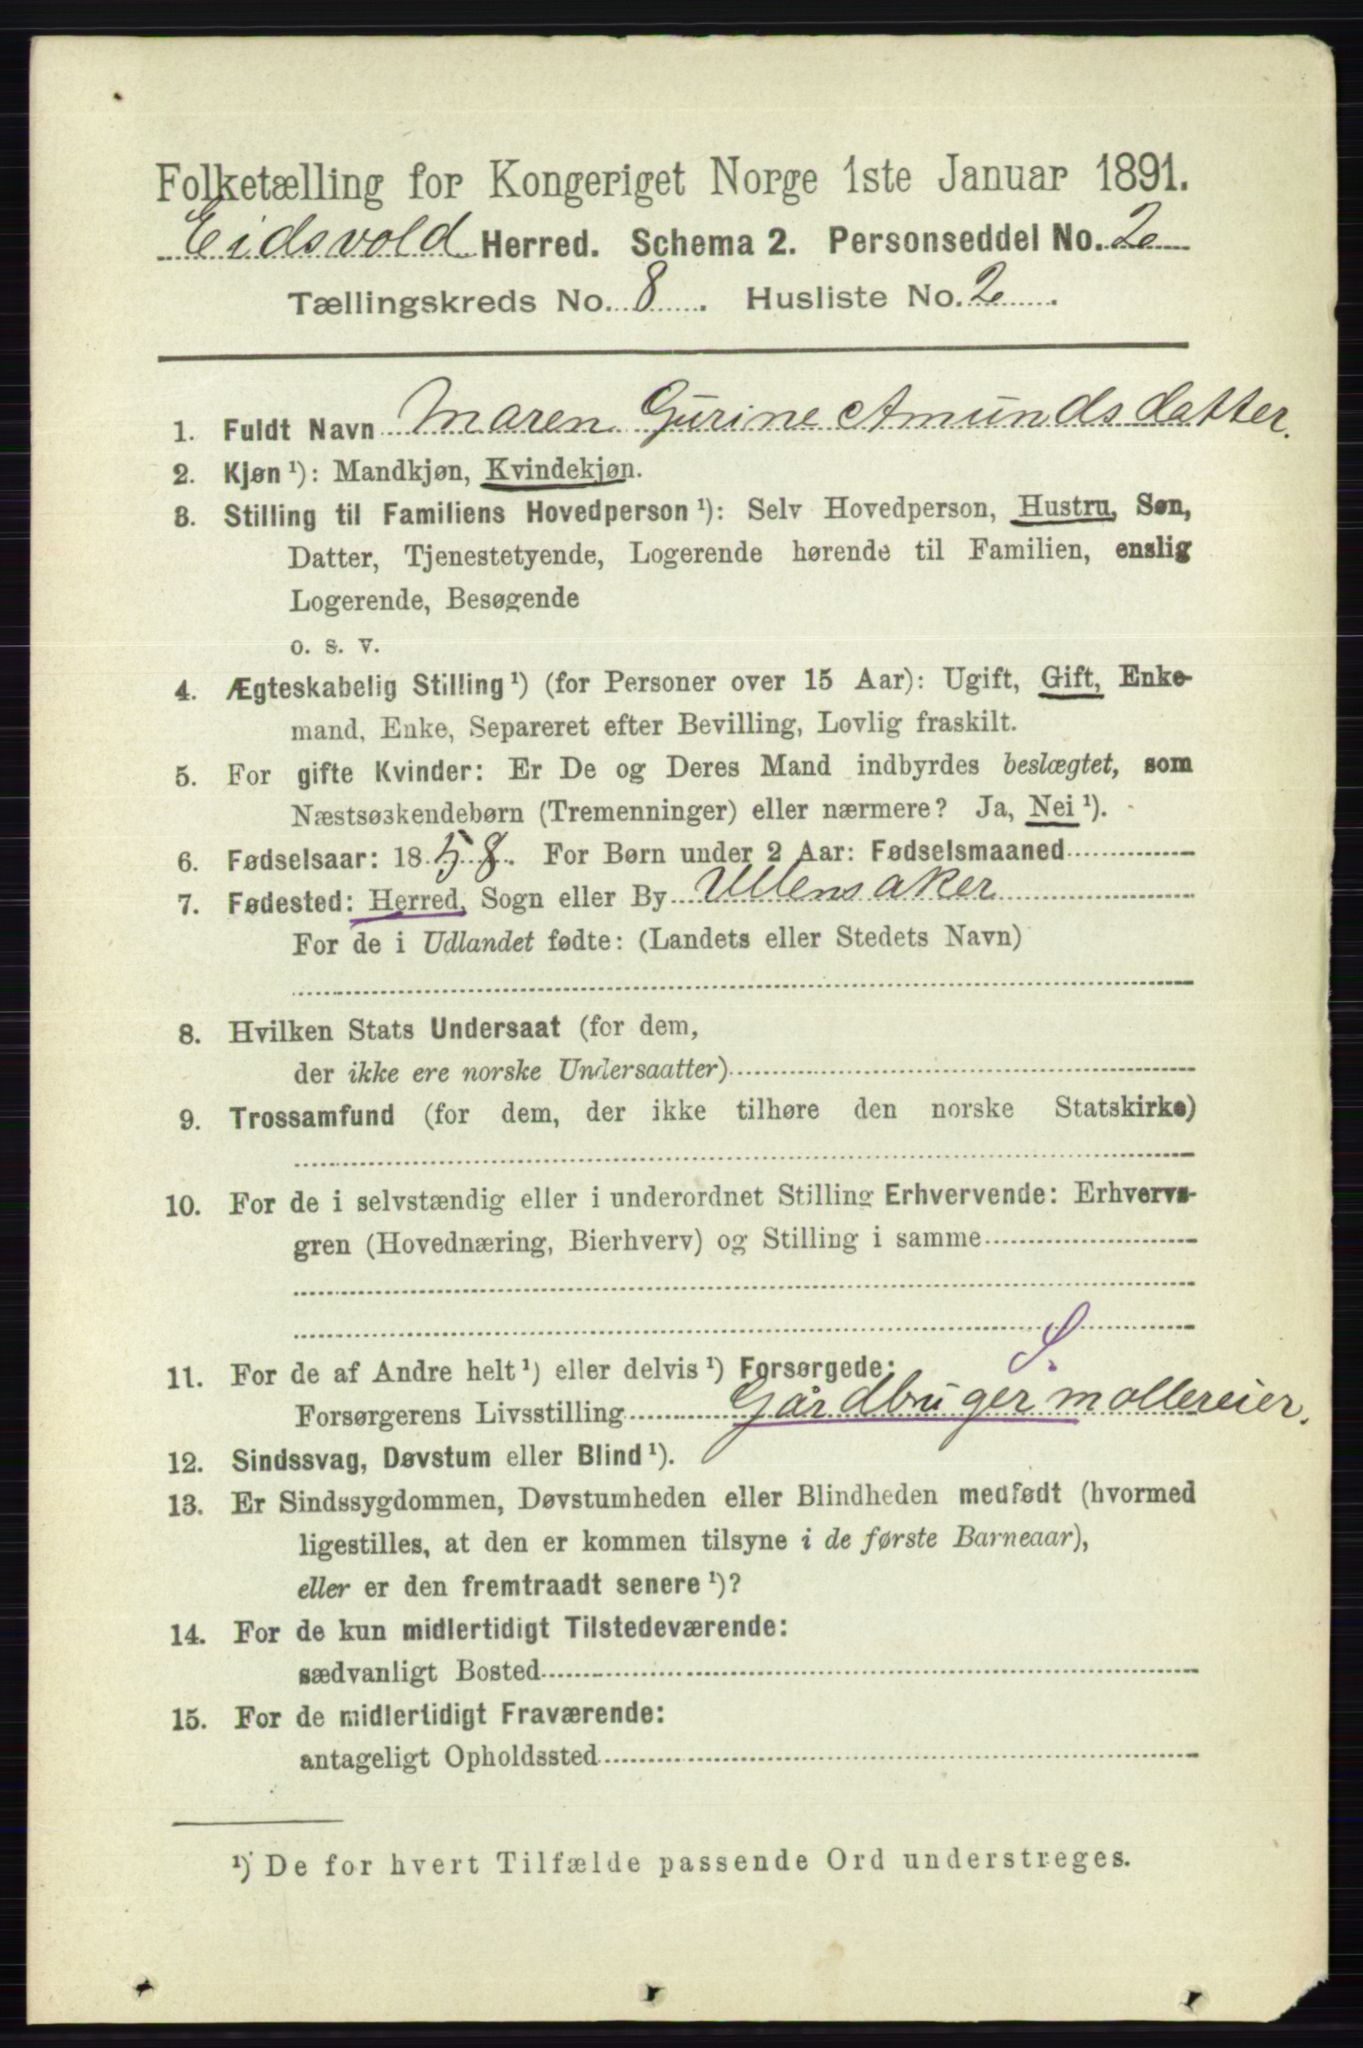 Folketælling for Kongeriget Norge 1ste Januar 1891.
Eidsvold Herred. Schema 2. Personseddel No. 2
Tællingskreds No. 8. Husliste No. 2.
1. Fuldt Navn Maren Gurine Amundsdatter.
2. Kjøn ¹): Mandkjøn, Kvindekjøn.
3. Stilling til Familiens Hovedperson ¹): Selv Hovedperson, Hustru, Søn,
Datter, Tjenestetyende, Logerende hørende til Familien, enslig
Logerende, Besøgende
o. s. v.
4. Ægteskabelig Stilling ¹) (for Personer over 15 Aar): Ugift, Gift, Enke-
mand, Enke, Separeret efter Bevilling, Lovlig fraskilt.
5. For gifte Kvinder: Er De og Deres Mand indbyrdes beslægtet, som
Næstsøskendebørn (Tremenninger) eller nærmere? Ja, Nei ¹).
6. Fødselsaar: 1858. For Børn under 2 Aar: Fødselsmaaned
7. Fødested: Herred, Sogn eller By Ullensaker
For de i Udlandet fødte: (Landets eller Stedets Navn)
8. Hvilken Stats Undersaat (for dem,
der ikke ere norske Undersaatter)
9. Trossamfund (for dem, der ikke tilhøre den norske Statskirke)
10. For de i selvstændig eller i underordnet Stilling Erhvervende: Erhvervs-
gren (Hovednæring, Bierhverv) og Stilling i samme
S.
11. For de af Andre helt ¹) eller delvis ¹) Forsørgede:
Forsørgerens Livsstilling Gårdbruger mollereier.
12. Sindssvag, Døvstum eller Blind ¹).
13. Er Sindssygdommen, Døvstumheden eller Blindheden medfødt (hvormed
ligestilles, at den er kommen tilsyne i de første Barneaar),
eller er den fremtraadt senere ¹)?
14. For de kun midlertidigt Tilstedeværende:
sædvanligt Bosted
15. For de midlertidigt Fraværende:
antageligt Opholdssted
¹) De for hvert Tilfælde passende Ord understreges.